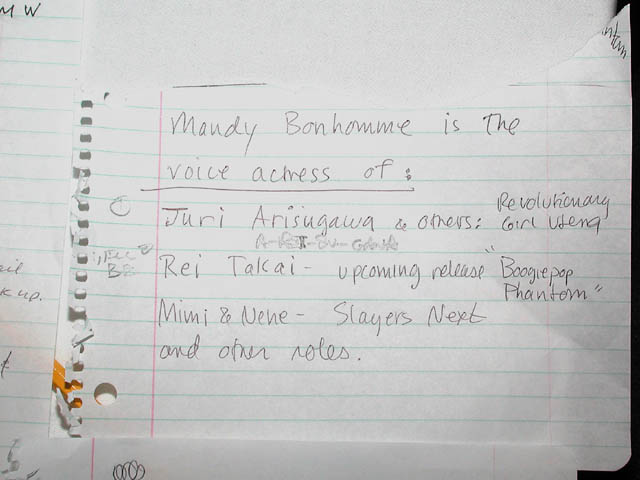 MW
Mandy Bonhomme is The
voice actress of:
Juri Arisugawa & others: Revolutionary
Girl Utena
A-RI-SU-GAWA
Rei Takai - upcoming release "Boogiepop
Phantom"
Mimi & Nene - Slayers Next
and other roles.
k up.